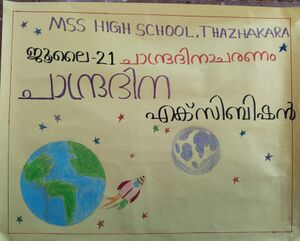 MSS HIGH SCHOOL, THAZHAKARA
ജൂലൈ-21 ചാന്ദ്രദിനാചരണം
ചാന്ദ്രദിന
എക്സിബിഷൻ